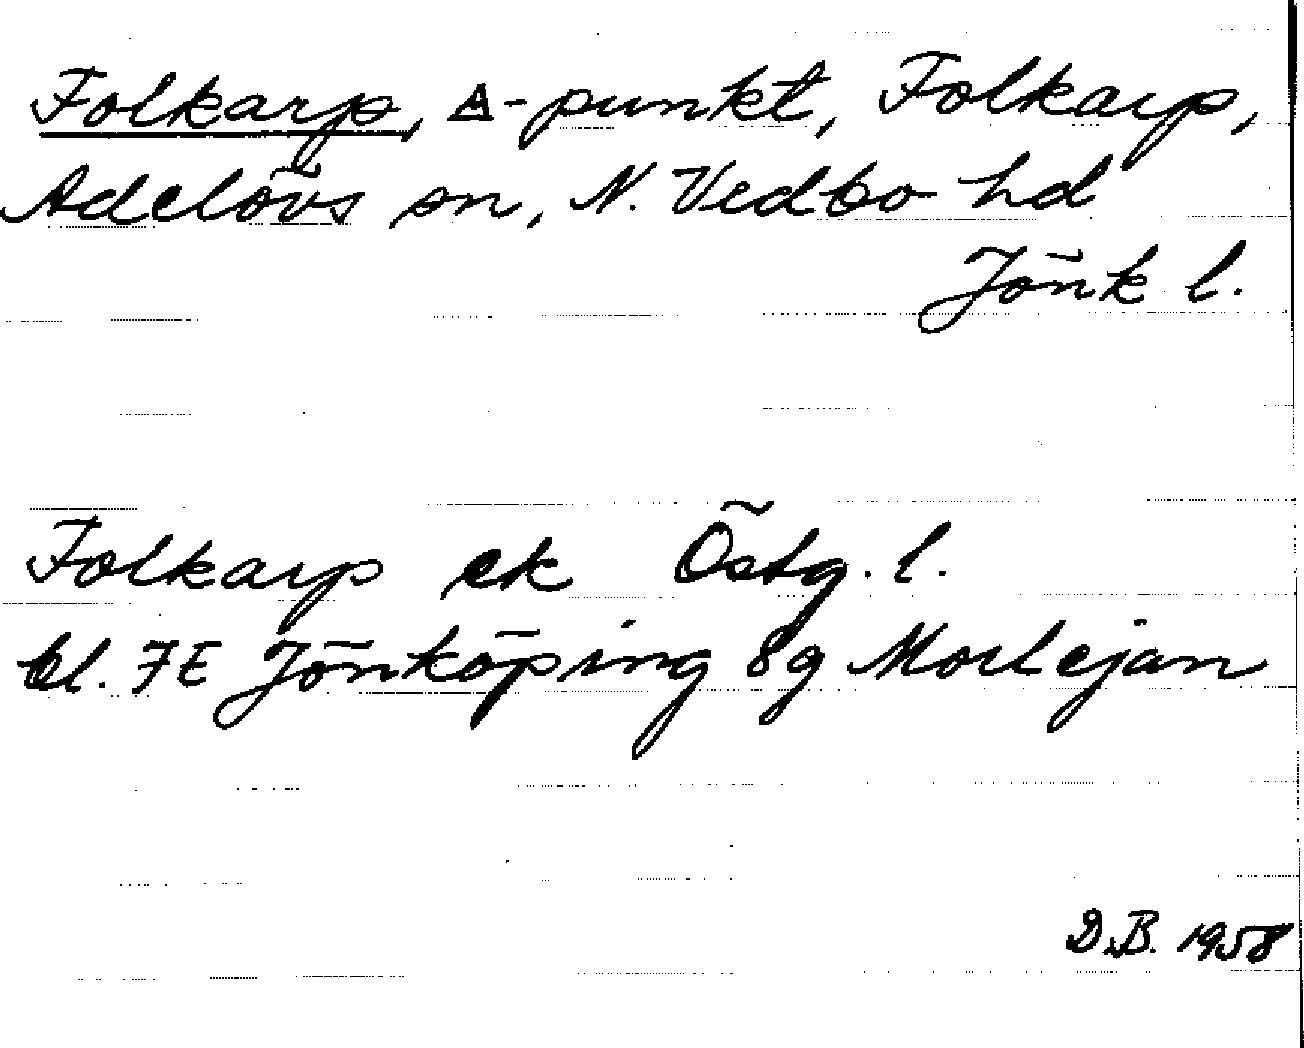 Folkarp, △-punkt, Folkarp,
Adelövs sn, N. Vedbo hd
Jönk l.
Folkarp ek Östg. l.
bl. 7E Jönköping 8g Mortejan
D.B. 1958